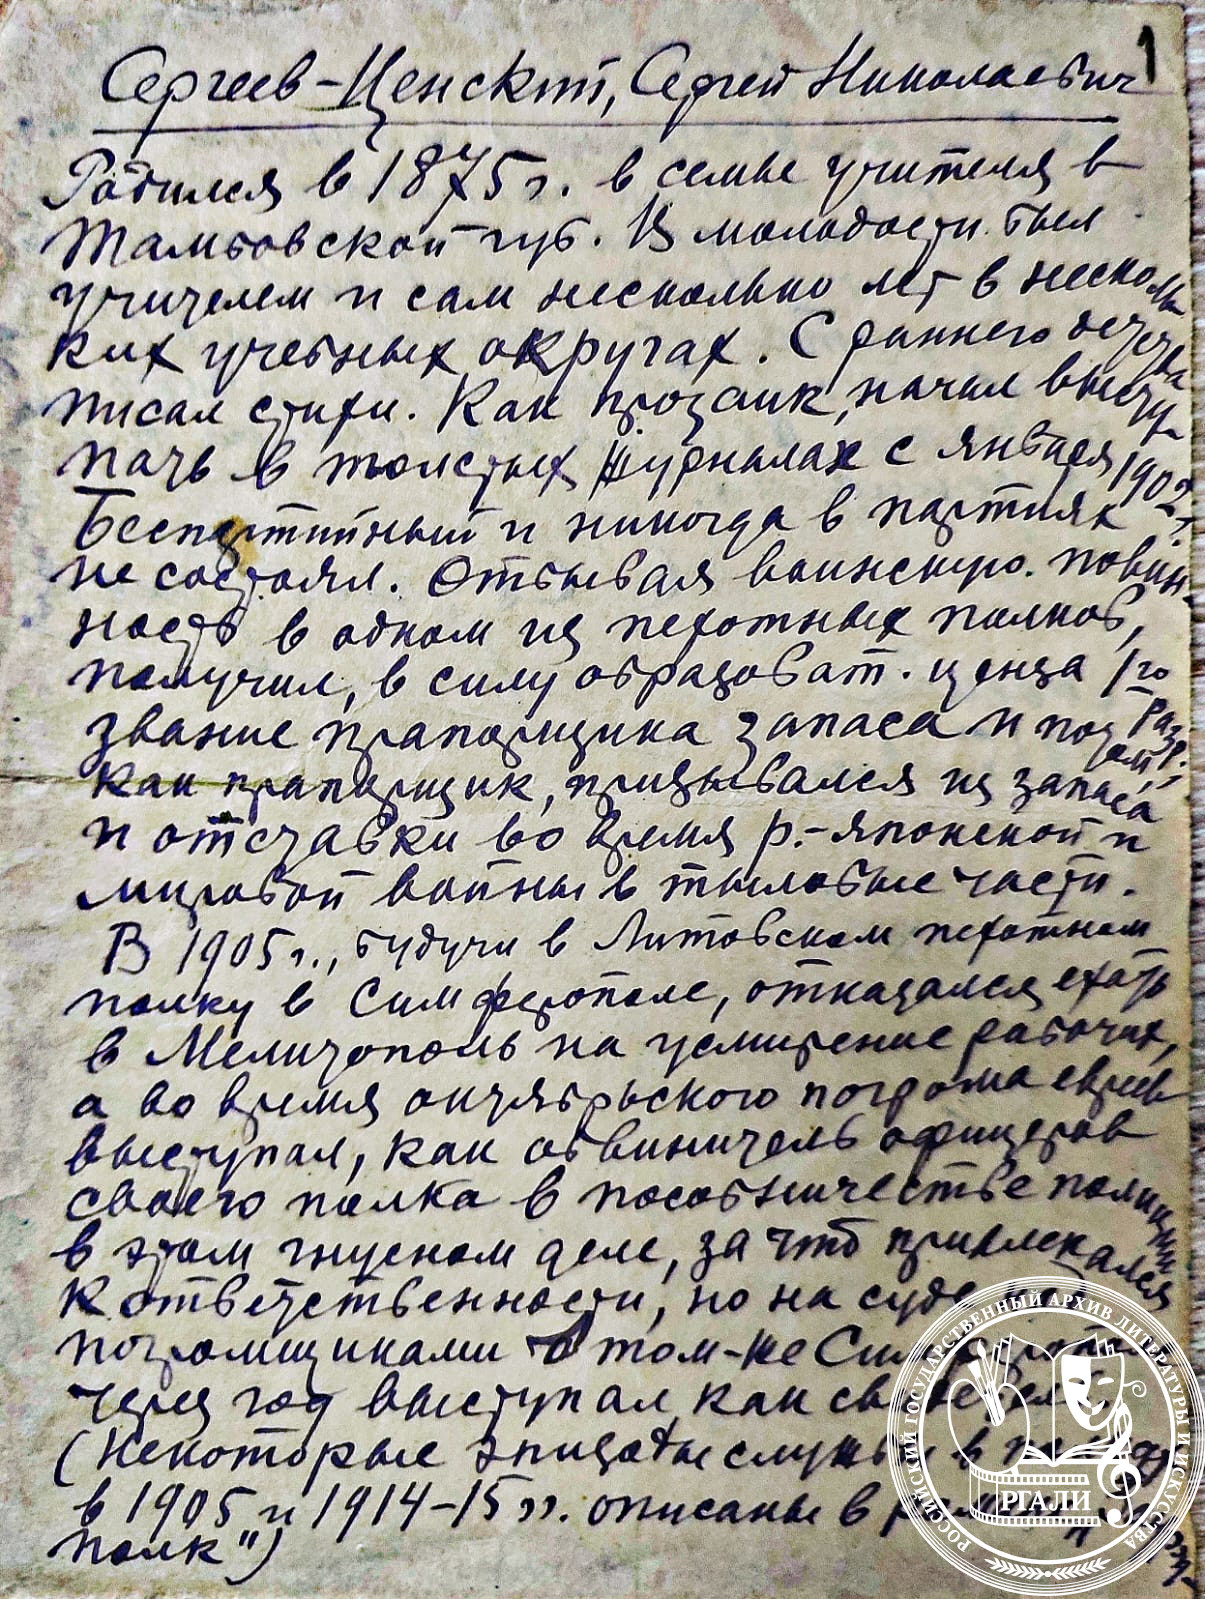 1
Сергеев-Ценский, Сергей Николаевич
Родился в 1875 г. в семье учителя в
Тамбовской губ. В молодости был
учителем и сам несколько лет в несколь
ких учебных округах. С раннего детства
писал стихи. Как прозаик, начал высту-
пать в толстых журналах с января 1902 г.
Беспартийный и никогда в партиях
не состоял. Отбывая воинскую повин-
ность в одном из пехотных полков,
получил, в силу образоват. ценза 1го разр.,
звание прапорщика запаса и потом,
как прапорщик, призывался из запаса
и отставки во время р.-японской и
мировой войны в тыловые части.
В 1905 г., будучи в Литовском пехотном
полку в Симферополе, отказался ехать
в Мелитополь на усмирение рабочих,
а во время октябрьского погрома евреев
выступал, как обвинитель офицеров
своего полка в пособничестве полиции
в этом гнусном деле, за что привлекался
к ответственности, но на суде
погромщиками в том-же
через год выступал, как
(Некоторые эпизоды службы в
в 1905 и 1914-15 гг. описаны в
полк")
РОССИЙСКИЙ ГОСУДАРСТВЕННЫЙ АРХИВ ЛИТЕРАТУРЫ И ИСКУССТВА
РГАЛИ